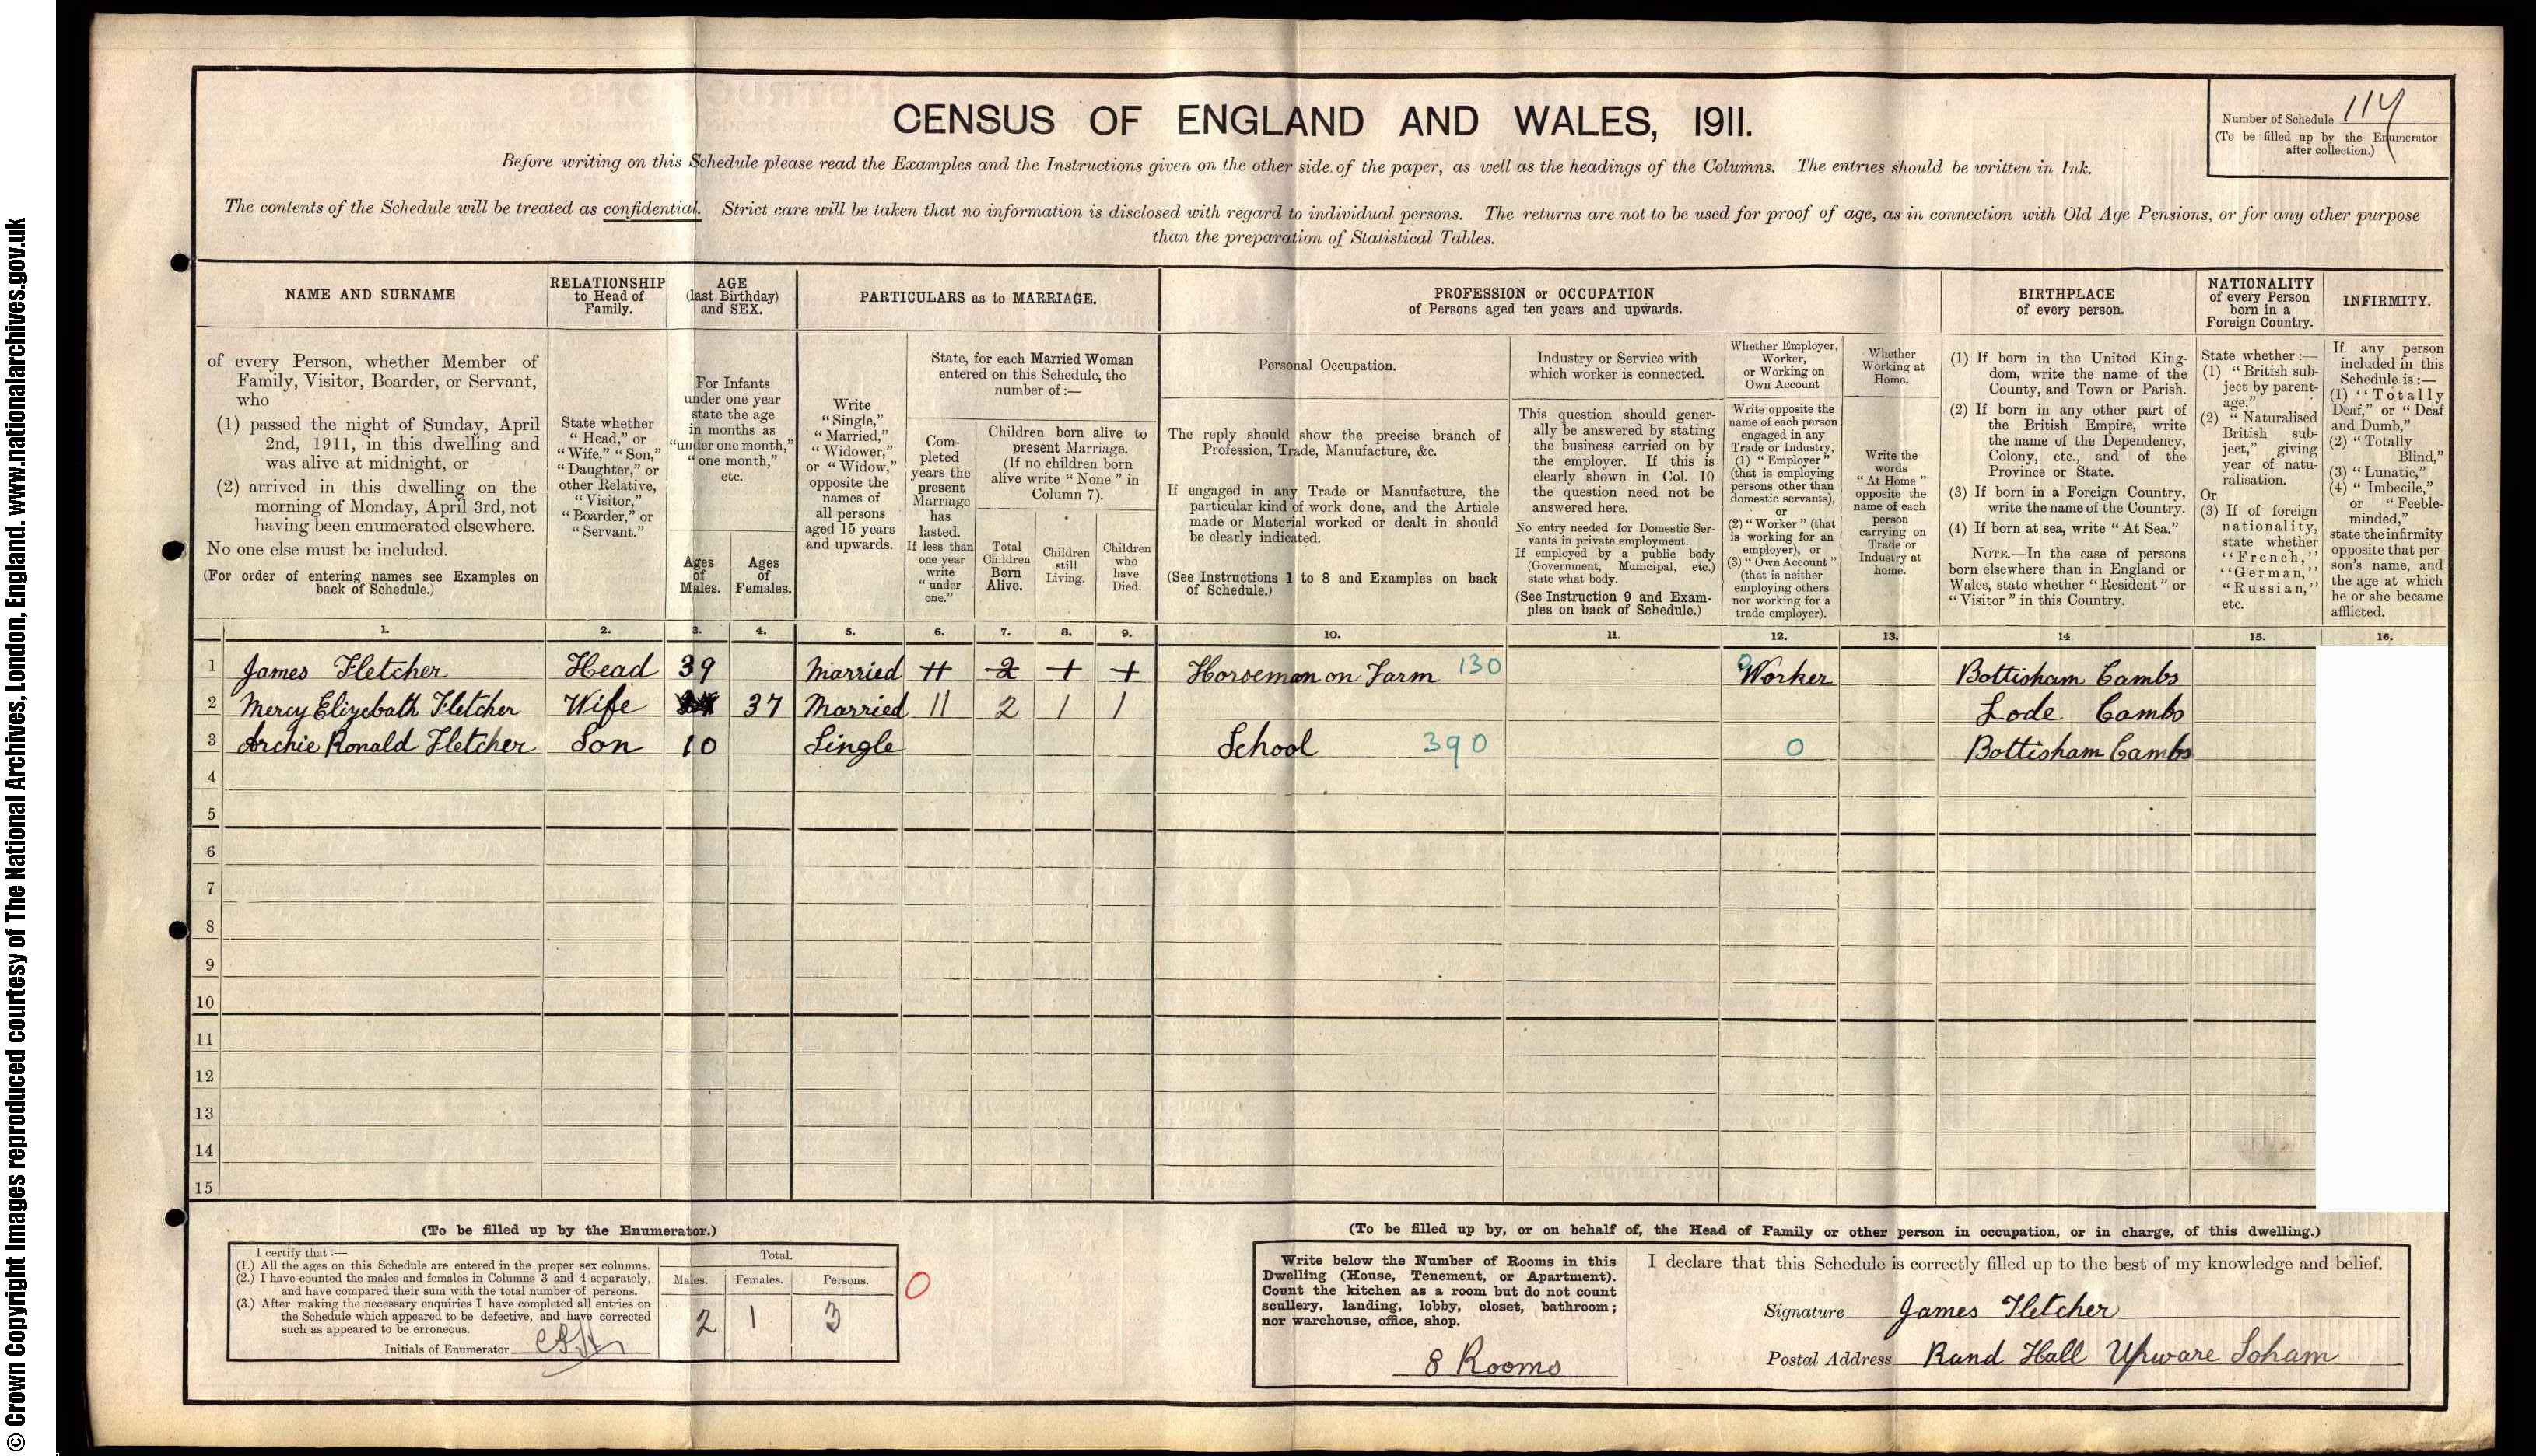 © Crown Copyright Images reproduced courtesy of The National Archives, London, England. www.nationalarchives.gov.uk
CENSUS OF ENGLAND AND WALES, 1911.
Number of Schedule 114
(To be filled up by the Enumerator
after collection.)
Before writing on this Schedule please read the Examples and the Instructions given on the other side of the paper, as well as the headings of the Columns. The entries should be written in Ink.
The contents of the Schedule will be treated as confidential. Strict care will be taken that no information is disclosed with regard to individual persons. The returns are not to be used for proof of age, as in connection with Old Age Pensions, or for any other purpose
than the preparation of Statistical Tables.
NAME AND SURNAME
of every Person, whether Member of
Family, Visitor, Boarder, or Servant,
who
(1) passed the night of Sunday, April
2nd, 1911, in this dwelling and
was alive at midnight, or
(2) arrived in this dwelling on the
morning of Monday, April 3rd, not
having been enumerated elsewhere.
No one else must be included.
(For order of entering names see Examples on
back of Schedule.)
RELATIONSHIP
to Head of
Family.
State whether
"Head," or
"Wife," "Son,"
"Daughter," or
other Relative,
"Visitor,"
"Boarder," or
"Servant."
AGE
(last Birthday)
and SEX.
For Infants
under one year
state the age
in months as
"under one month,"
"one month,"
etc.
Ages
of
Males.
Ages
of
Females.
PARTICULARS as to MARRIAGE.
Write
"Single,"
"Married,"
"Widower,"
or "Widow,"
opposite the
names of
all persons
aged 15 years
and upwards.
State, for each Married Woman
entered on this Schedule, the
number of:—
Com-
pleted
years the
present
Marriage
has
lasted.
If less than
one year
write
"under
one."
Children born alive to
present Marriage.
(If no children born
alive write "None" in
Column 7).
Total
Children
Born
Alive.
Children
still
Living.
Children
who
have
Died.
PROFESSION or OCCUPATION
of Persons aged ten years and upwards.
Personal Occupation.
The reply should show the precise branch of
Profession, Trade, Manufacture, &c.
If engaged in any Trade or Manufacture, the
particular kind of work done, and the Article
made or Material worked or dealt in should
be clearly indicated.
(See Instructions 1 to 8 and Examples on back
of Schedule.)
Industry or Service with
which worker is connected.
This question should gener-
ally be answered by stating
the business carried on by
the employer. If this is
clearly shown in Col. 10
the question need not be
answered here.
No entry needed for Domestic Ser-
vants in private employment.
If employed by a public body
(Government, Municipal, etc.)
state what body.
(See Instruction 9 and Exam-
ples on back of Schedule.)
Whether Employer,
Worker,
or Working on
Own Account
Write opposite the
name of each person
engaged in any
Trade or Industry,
(1) "Employer"
(that is employing
persons other than
domestic servants),
or
(2) "Worker" (that
is working for an
employer), or
(3) "Own Account"
(that is neither
employing others
nor working for a
trade employer).
Whether
Working at
Home.
Write the
words
"At Home"
opposite the
name of each
person
carrying on
Trade or
Industry at
home.
BIRTHPLACE
of every person.
(1) If born in the United King-
dom, write the name of the
County, and Town or Parish.
(2) If born in any other part of
the British Empire, write
the name of the Dependency,
Colony, etc., and of the
Province or State.
(3) If born in a Foreign Country,
write the name of the Country.
(4) If born at sea, write "At Sea."
NOTE.—In the case of persons
born elsewhere than in England or
Wales, state whether "Resident" or
"Visitor" in this Country.
NATIONALITY
of every Person
born in a
Foreign Country.
State whether:—
(1) "British sub-
ject by parent-
age."
(2) "Naturalised
British sub-
ject," giving
year of natu-
ralisation.
Or
(3) If of foreign
nationality,
state whether
"French,"
"German,"
"Russian,"
etc.
INFIRMITY.
If any person
included in this
Schedule is:—
(1) "Totally
Deaf," or "Deaf
and Dumb,"
(2) "Totally
Blind,"
(3) "Lunatic,"
(4) "Imbecile,"
or "Feeble-
minded,"
state the infirmity
opposite that per-
son's name, and
the age at which
he or she became
afflicted.
1. 2. 3. 4. 5. 6. 7. 8. 9. 10. 11. 12. 13. 14. 15. 16.
1 James Fletcher Head 39 Married 11 2 1 1 Horseman on Farm 130 Worker Bottisham Cambs
2 Mercy Elizebath Fletcher Wife 37 Married 11 2 1 1 Lode Cambs
3 Archie Ronald Fletcher Son 10 Single School 390 0 Bottisham Cambs
4
5
6
7
8
9
10
11
12
13
14
15
(To be filled up by the Enumerator.)
I certify that:—
(1.) All the ages on this Schedule are entered in the proper sex columns.
(2.) I have counted the males and females in Columns 3 and 4 separately,
and have compared their sum with the total number of persons.
(3.) After making the necessary enquiries I have completed all entries on
the Schedule which appeared to be defective, and have corrected
such as appeared to be erroneous.
Initials of Enumerator
Total.
Males. Females. Persons.
2 1 3
0
(To be filled up by, or on behalf of, the Head of Family or other person in occupation, or in charge, of this dwelling.)
Write below the Number of Rooms in this
Dwelling (House, Tenement, or Apartment).
Count the kitchen as a room but do not count
scullery, landing, lobby, closet, bathroom;
nor warehouse, office, shop.
8 Rooms
I declare that this Schedule is correctly filled up to the best of my knowledge and belief.
Signature James Fletcher
Postal Address Rand Hall Upware Soham